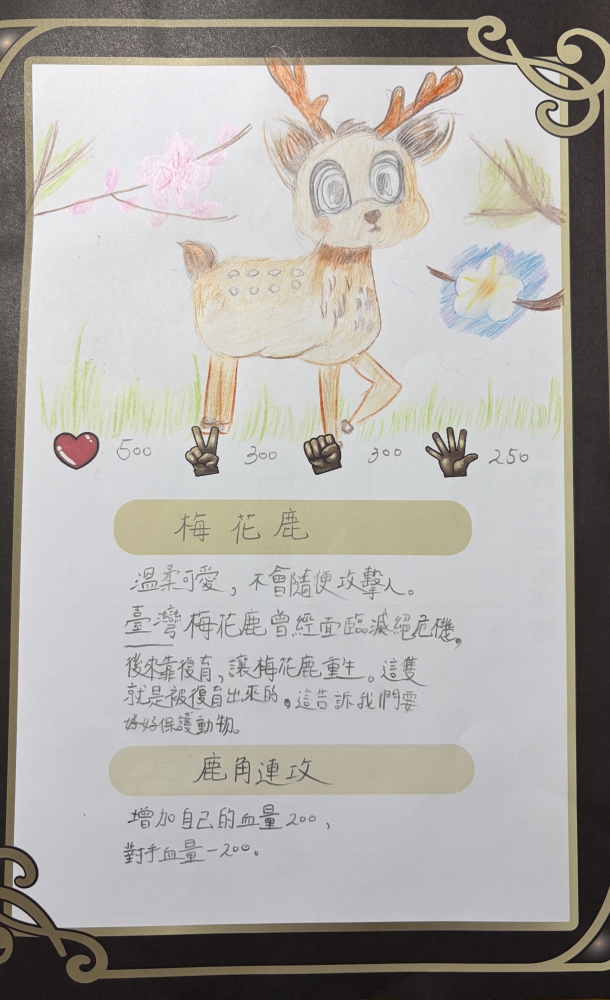 500 300 300 250
梅花鹿
溫柔可愛，不會隨便攻擊人。
臺灣梅花鹿曾經面臨滅絕危機，
後來靠復育，讓梅花鹿重生。這隻
就是被復育出來的。這告訴我們要
好好保護動物。
鹿角連攻
增加自己的血量200，
對手血量-200。